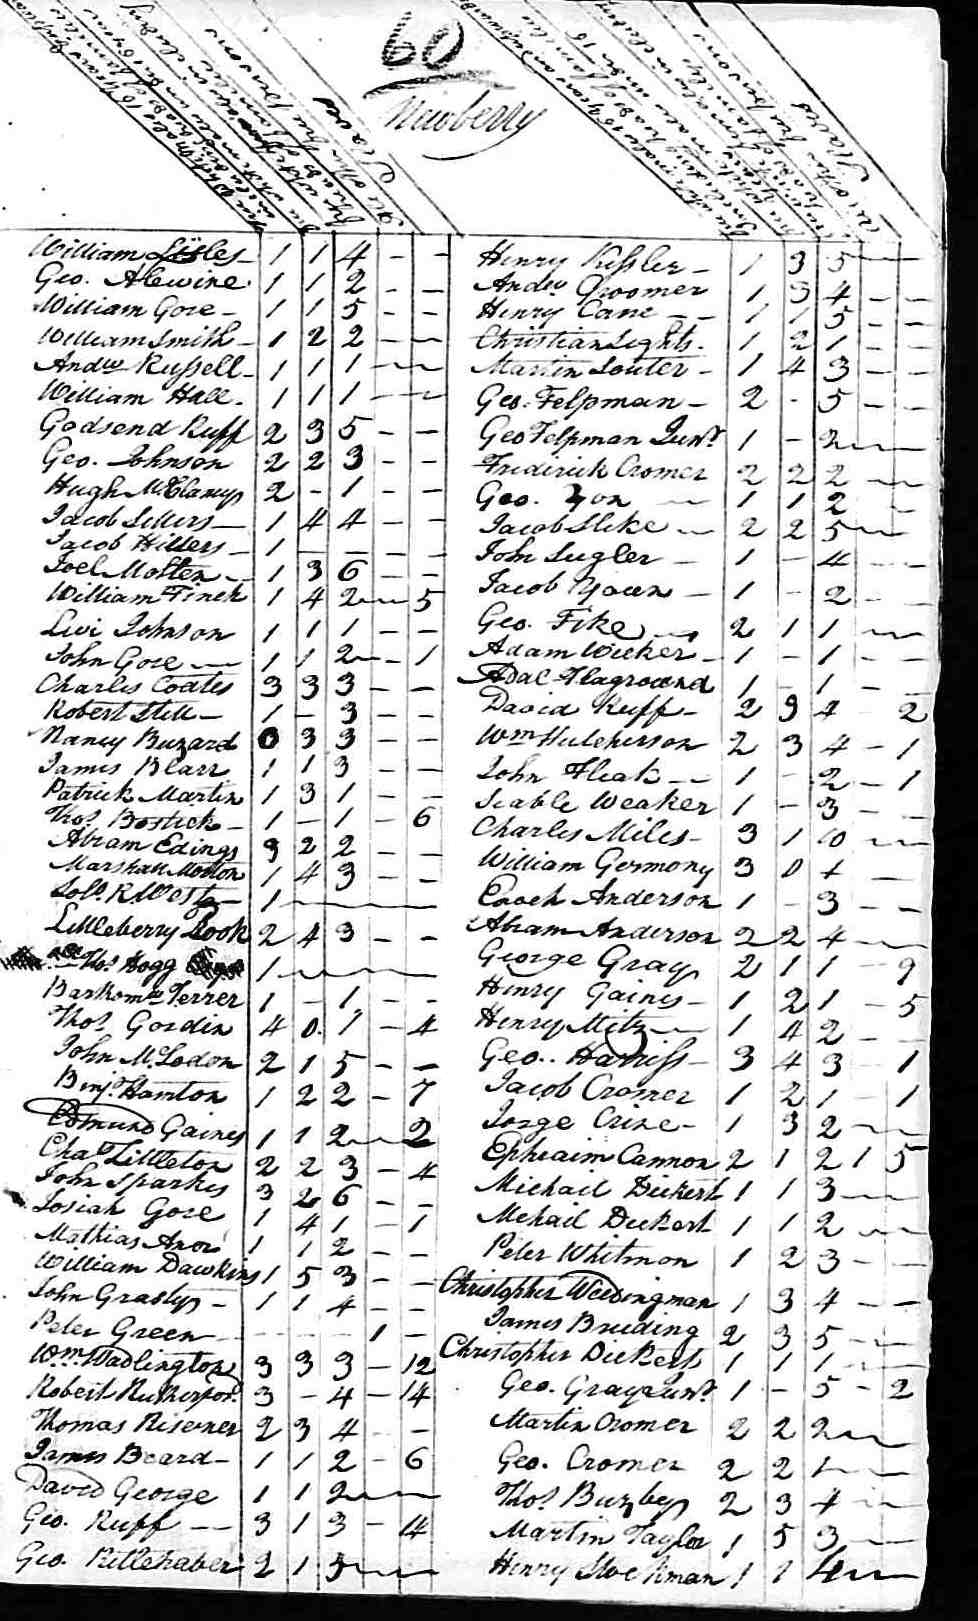 60
Newberry
William Lisles - 1 1 4 - -
Geo. Alewine 1 1 2 - -
William Gore - 1 1 5 - -
William Smith - 1 2 2 - -
Andw Russell - 1 1 1 - -
William Hall - 1 1 1 - -
Godsend Ruff 2 3 5 - -
Geo. Johnson 2 2 3 - -
Hugh McClanys 2 - 1 - -
Jacob Sellers - 1 4 4 - -
Jacob Hillers - 1 - - - -
Joel Molten - 1 3 6 - -
William Finch 1 4 2 - 5
Levi Johnson 1 1 1 - -
John Gore - 1 1 2 - 1
Charles Coates 3 3 3 - -
Robert Still - 1 - 3 - -
Nancy Buzard 0 3 3 - -
James Blair 1 1 3 - -
Patrick Martin 1 3 1 - -
Thos. Bostick - 1 - 1 - 6
Abram Edings 3 2 2 - -
Marshall Molton 1 4 3 - -
Solo. R West - 1 - - - -
Littleberry Rook 2 4 3 - -
Thos. Hogg 1 - - - -
Barthomw Ferrer 1 - 1 - -
Thos. Gordin 4 0 1 - 4
John McLodon 2 1 5 - -
Benj. Hamton 1 2 2 - 7
Edmund Gaines 1 1 2 - 2
Chas. Littleton 2 2 3 - 4
John Sparkes 3 2 6 - -
Josiah Gore 1 4 1 - 1
Mathias 1 1 2 - -
William Dawkins 1 5 3 - -
John Grasty - 1 1 4 - -
Peter Green - - - - 1 -
Wm. Wadlington 3 3 3 - 12
Robert Rutherford. 3 - 4 - 14
Thomas Risener 2 3 4 - -
James Beard - 1 1 2 - 6
David George 1 1 2 - -
Geo. Ruff - 3 1 3 - 14
Geo. Rittlehaber 2 1 5 - -
Henry Kessler - 1 3 5 - -
Andw. Croomer 1 3 4 - -
Henry Cane - - 1 1 5 - -
Christian Sights. 1 2 1 - -
Martin Souter - 1 4 3 - -
Geo. Felpman - 2 - 5 - -
Geo Felpman Junr. 1 - 2 - -
Frederick Cromer 2 2 2 - -
Geo. Yon - 1 1 2 - -
Jacob Slike - 2 2 5 - -
John Sugler - 1 - 4 - -
Jacob - 1 - 2 - -
Geo. Fike - 2 1 1 - -
Adam Wicker - 1 - 1 - -
Adal Flaground 1 - 1 - -
David Ruff - 2 3 4 - 2
Wm Hutcherson 2 3 4 - 1
John Fleak - 1 - 2 - 1
Seable Weaker 1 - 3 - -
Charles Miles - 3 1 10 - -
William Germony 3 0 + - -
Enoch Anderson 1 - 3 - -
Abram Anderson 2 2 4 - -
George Gray 2 1 1 - 9
Henry Gaines - 1 2 1 - 5
Henry Mitz - 1 4 2 - -
Geo. Harriss - 3 4 3 - 1
Jacob Cromer 1 2 1 - 1
Jorge Crine - 1 3 2 - -
Ephraim Cannon 2 1 2 1 5
Michail Dickert 1 1 3 - -
Mehail Dickert 1 1 2 - -
Peter Whitmon 1 2 3 - -
Christopher Weedingman 1 3 4 - -
James Breeding 2 3 5 - -
Christopher Dickert 1 1 1 - -
Geo. Gray Junr. 1 - 5 - 2
Martin Cromer 2 2 2 - -
Geo. Cromer 2 2 1 - -
Thos. Buzbey 2 3 4 - -
Martin Taylor 1 5 3 - -
Henry Stockman 1 1 4 - -